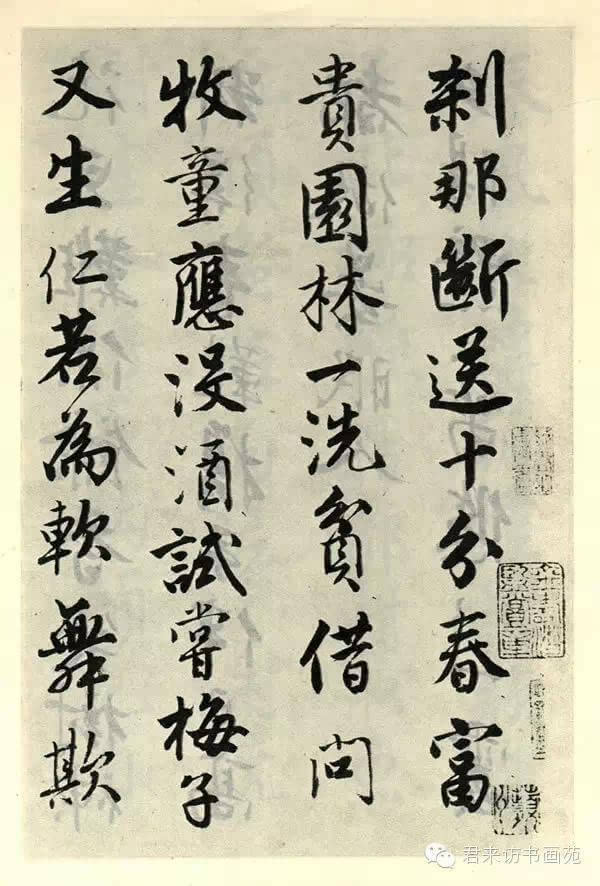 刹那斷送十分春富
貴園林一洗貧借問
牧童應没酒試嘗梅子
又生仁若為軟舞欺
君来访书画苑